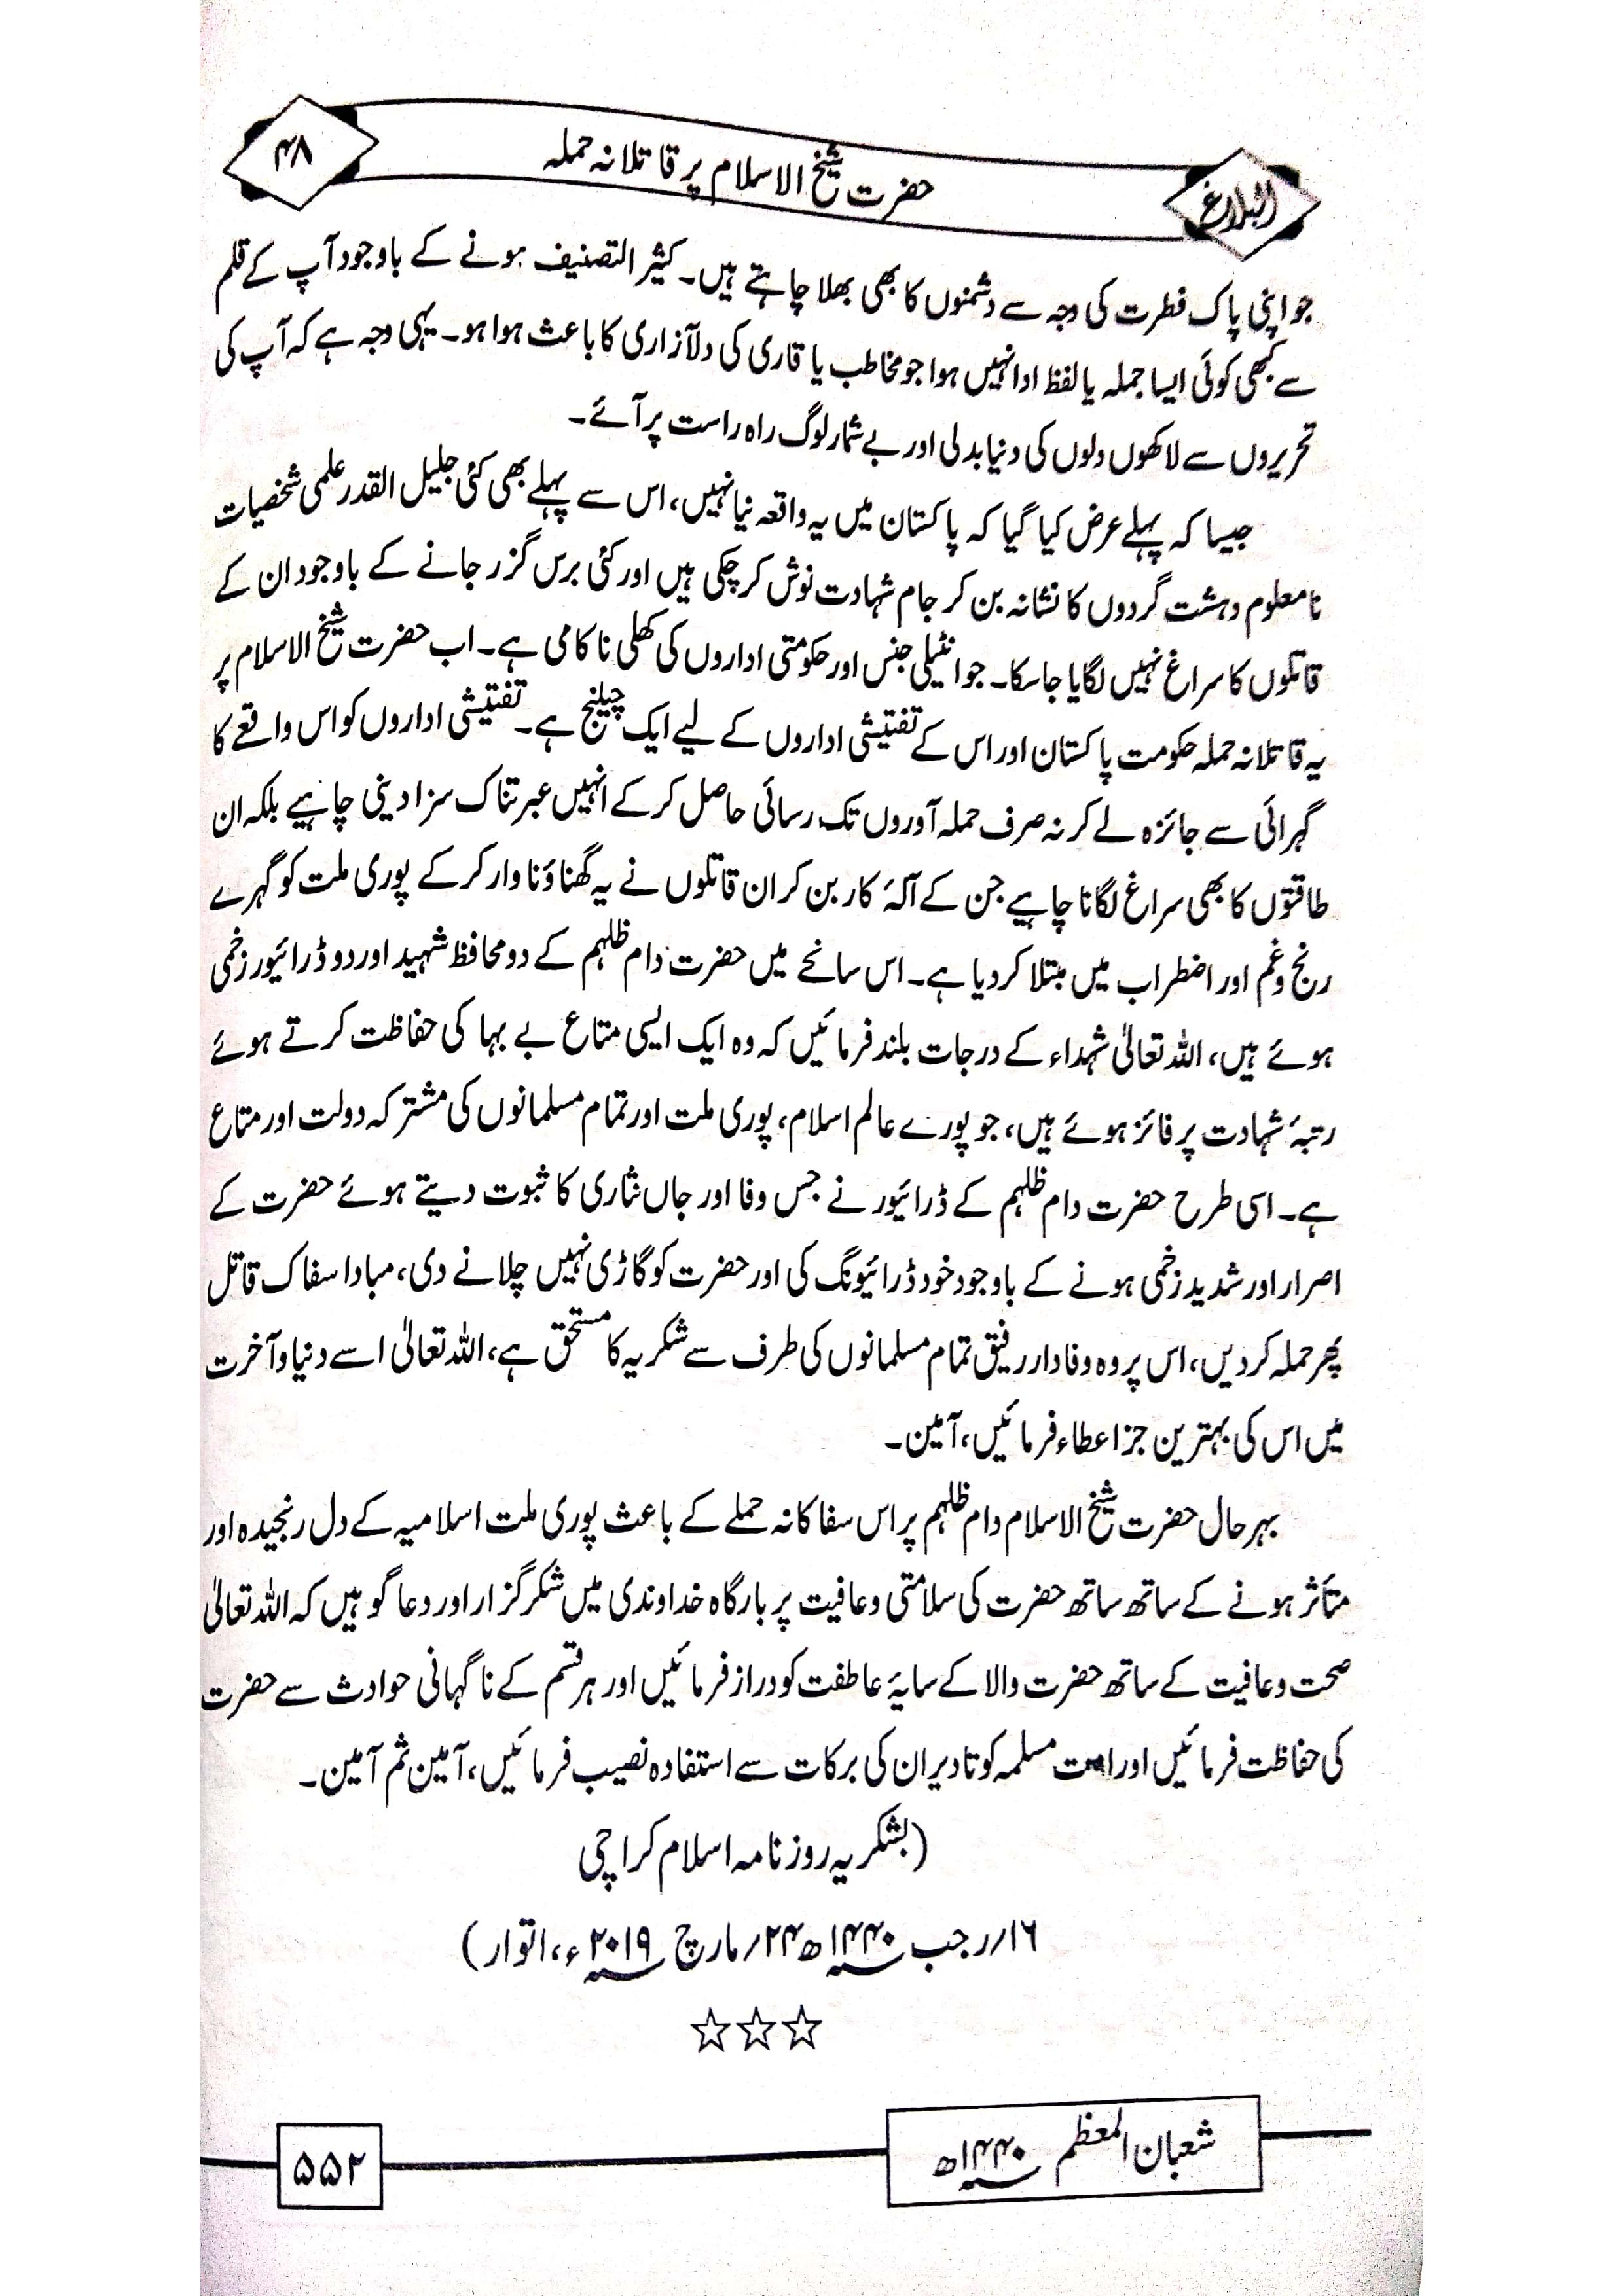 البلاغ
حضرت شیخ الاسلام پر قاتلانہ حملہ
۴۸
جو اپنی پاک فطرت کی وجہ سے دشمنوں کا بھی بھلا چاہتے ہیں۔ کثیر التصنیف ہونے کے باوجود آپ کے قلم
سے کبھی کوئی ایسا جملہ یا لفظ ادا نہیں ہوا جو مخاطب یا قاری کی دلآزاری کا باعث ہوا ہو۔ یہی وجہ ہے کہ آپ کی
تحریروں سے لاکھوں دلوں کی دنیا بدلی اور بے شمار لوگ راہ راست پر آئے۔
جیسا کہ پہلے عرض کیا گیا کہ پاکستان میں یہ واقعہ نیا نہیں، اس سے پہلے بھی کئی جلیل القدر علمی شخصیات
نامعلوم دہشت گردوں کا نشانہ بن کر جام شہادت نوش کر چکی ہیں اور کئی برس گزر جانے کے باوجود ان کے
قاتلوں کا سراغ نہیں لگایا جاسکا۔ جو انٹیلی جنس اور حکومتی اداروں کی کھلی ناکامی ہے۔ اب حضرت شیخ الاسلام پر
یہ قاتلانہ حملہ حکومت پاکستان اور اس کے تفتیشی اداروں کے لیے ایک چیلنج ہے۔ تفتیشی اداروں کو اس واقعے کا
گہرائی سے جائزہ لے کر نہ صرف حملہ آوروں تک رسائی حاصل کر کے انہیں عبرتناک سزا دینی چاہیے بلکہ ان
طاقتوں کا بھی سراغ لگانا چاہیے جن کے آلۂ کار بن کر ان قاتلوں نے یہ گھناؤنا وار کر کے پوری ملت کو گہرے
رنج و غم اور اضطراب میں مبتلا کر دیا ہے۔ اس سانحے میں حضرت دام ظلہم کے دو محافظ شہید اور دو ڈرائیور زخمی
ہوئے ہیں، اللہ تعالیٰ شہداء کے درجات بلند فرمائیں کہ وہ ایک ایسی متاع بے بہا کی حفاظت کرتے ہوئے
رتبۂ شہادت پر فائز ہوئے ہیں، جو پورے عالم اسلام، پوری ملت اور تمام مسلمانوں کی مشترکہ دولت اور متاع
ہے۔ اسی طرح حضرت دام ظلہم کے ڈرائیور نے جس وفا اور جاں نثاری کا ثبوت دیتے ہوئے حضرت کے
اصرار اور شدید زخمی ہونے کے باوجود خود ڈرائیونگ کی اور حضرت کو گاڑی نہیں چلانے دی، مبادا سفاک قاتل
پھر حملہ کر دیں، اس پر وہ وفادار رفیق تمام مسلمانوں کی طرف سے شکریہ کا مستحق ہے، اللہ تعالیٰ اسے دنیا و آخرت
میں اس کی بہترین جزا عطاء فرمائیں، آمین۔
بہرحال حضرت شیخ الاسلام دام ظلہم پر اس سفاکانہ حملے کے باعث پوری ملت اسلامیہ کے دل رنجیدہ اور
متأثر ہونے کے ساتھ ساتھ حضرت کی سلامتی و عافیت پر بارگاہ خداوندی میں شکر گزار اور دعا گو ہیں کہ اللہ تعالیٰ
صحت و عافیت کے ساتھ حضرت والا کے سایۂ عاطفت کو دراز فرمائیں اور ہر قسم کے ناگہانی حوادث سے حضرت
کی حفاظت فرمائیں اور امت مسلمہ کو تا دیر ان کی برکات سے استفادہ نصیب فرمائیں، آمین ثم آمین۔
(بشکریہ روزنامہ اسلام کراچی
۱۶/رجب ۱۴۴۰ھ ۲۴/مارچ ۲۰۱۹ء، اتوار)
☆☆☆
شعبان المعظم ۱۴۴۰ھ
۵۵۲